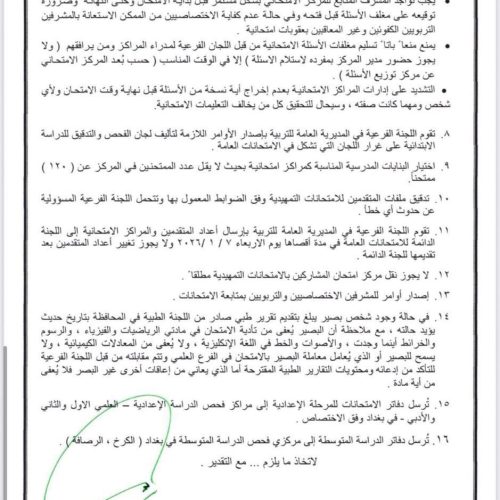 يجب تواجد المشرف المتابع للمركز الامتحاني بشكل مستمر قبل بداية الامتحان وحتى انتهائه وضرورة
توقيعه على مغلف الأسئلة قبل فتحه وفي حالة عدم كفاية الاختصاصيين من الممكن الاستعانة بالمشرفين
التربويين الكفوئين وغير المعاقبين بعقوبات امتحانية .
• يمنع منعاً باتاً تسليم مغلفات الأسئلة الامتحانية من قبل اللجان الفرعية لمدراء المراكز ومن يرافقهم ( ولا
يجوز حضور مدير المركز بمفرده لاستلام الاسئلة ) إلا في الوقت المناسب ( حسب بُعد المركز الامتحاني
عن مركز توزيع الأسئلة ) .
• التشديد على إدارات المراكز الامتحانية بعدم إخراج أية نسخة من الأسئلة قبل نهاية وقت الامتحان ولأي
شخص ومهما كانت صفته ، وسيحال للتحقيق كل من يخالف التعليمات الامتحانية.
٨. تقوم اللجنة الفرعية في المديرية العامة للتربية بإصدار الأوامر اللازمة لتأليف لجان الفحص والتدقيق للدراسة
الابتدائية على غرار اللجان التي تشكل في الامتحانات العامة .
٩. اختيار البنايات المدرسية المناسبة كمراكز امتحانية بحيث لا يقل عدد الممتحنين في المركز عن ( ١٢٠ )
ممتحناً.
١٠. تدقيق ملفات المتقدمين للامتحانات التمهيدية وفق الضوابط المعمول بها وتتحمل اللجنة الفرعية المسؤولية
عن حدوث أي خطأ .
١١. تقوم اللجنة الفرعية في المديرية العامة للتربية بإرسال أعداد المتقدمين والمراكز الامتحانية إلى اللجنة
الدائمة للامتحانات العامة في مدة أقصاها يوم الاربعاء ٧ / ١ /٢٠٢٦ ولا يجوز تغيير أعداد المتقدمين بعد
تقديمها للجنة الدائمة .
١٢. لا يجوز نقل مركز امتحان المشاركين بالامتحانات التمهيدية مطلقاً .
١٣. إصدار أوامر للمشرفين الاختصاصيين والتربويين بمتابعة الامتحانات .
١٤. في حالة وجود شخص بصير يبلغ بتقديم تقرير طبي صادر من اللجنة الطبية في المحافظة بتاريخ حديث
يؤيد حالته ، مع ملاحظة أن البصير يُعفى من تأدية الامتحان في مادتي الرياضيات والفيزياء ، والرسوم
والخرائط أينما وجدت ، والأصوات والخط في اللغة الإنكليزية ، ولا يُعفى من المعادلات الكيميائية ، ولا
يسمح للبصير أو الذي يُعامل معاملة البصير بالامتحان في الفرع العلمي وتتم مقابلته من قبل اللجنة الفرعية
للتأكد من إدعائه ومحتويات التقارير الطبية المقترحة أما الذي يعاني من إعاقات أخرى غير البصر فلا يُعفى
من أية مادة .
١٥. تُرسل دفاتر الامتحانات للمرحلة الإعدادية إلى مراكز فحص الدراسة الإعدادية – العلمي الاول والثاني
والأدبي - في بغداد وفق الاختصاص .
١٦. تُرسل دفاتر الدراسة المتوسطة إلى مركزي فحص الدراسة المتوسطة في بغداد ( الكرخ ، الرصافة ) .
لاتخاذ ما يلزم ... مع التقدير .